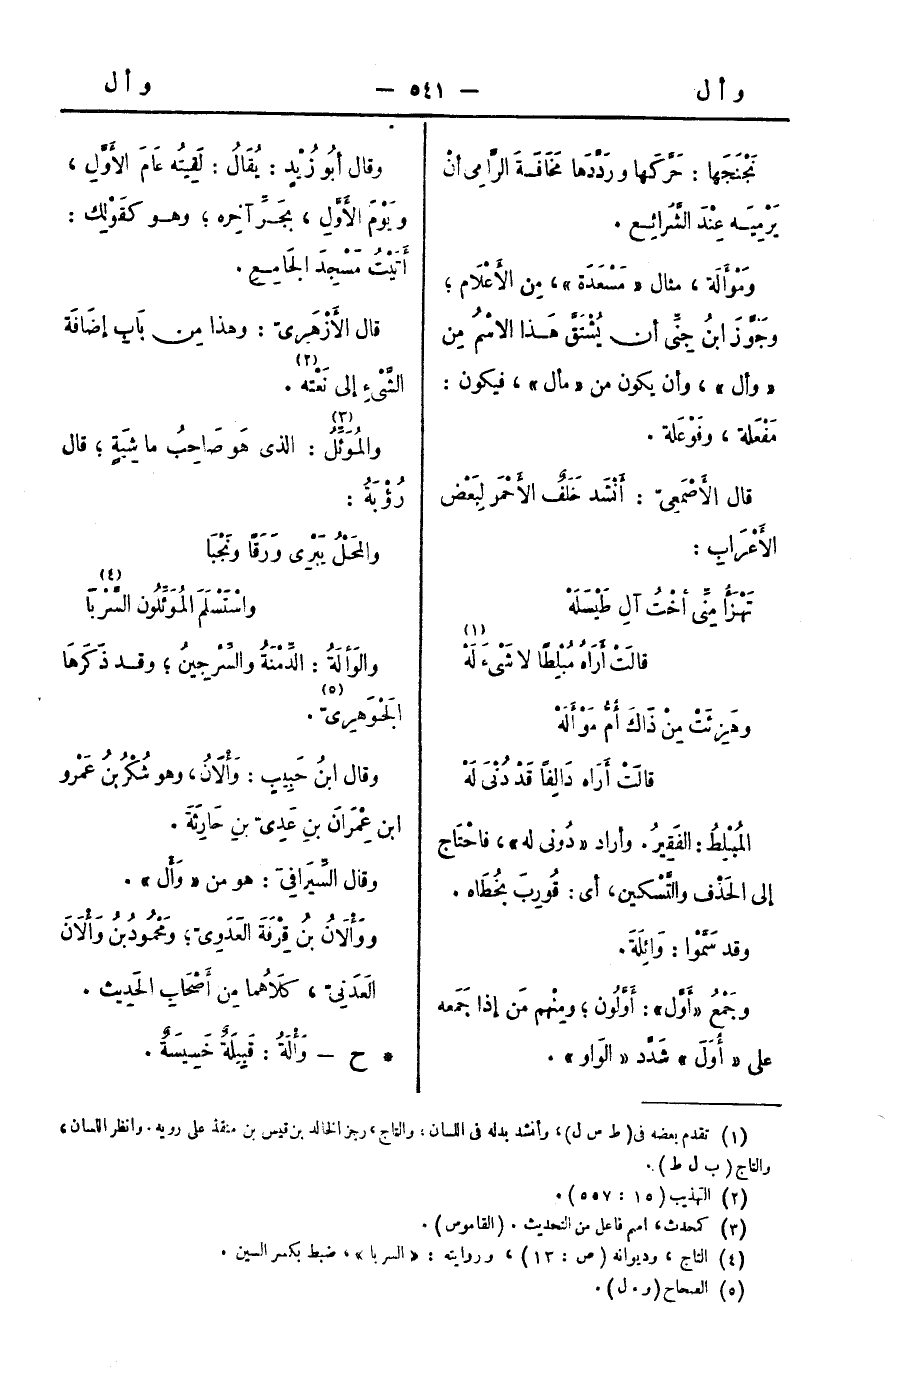 وأل
— ٥٤١ —
وأل
نَجْنَجَها : حَرَّكها وردَّدها مَخَافَةَ الرَّامِى أنْ
يَرْمِيَه عِنْدَ الشَّرائِع .
ومَوْأَلَة ، مثال « مَسْعَدَة » ، مِن الأَعْلام ؛
وجَوَّزَ ابنُ جِنِّى أن يُشْتَقَّ هَذا الاسْمُ مِن
« وأل » ، وأن يكون من « مأل » ، فيكون :
مَفْعَلة ، وفَوْعَلة .
قال الأَصْمَعِىّ : أَنْشَد خَلَفٌ الأَحْمَر لِبَعْض
الأَعْراب :
تَهْزَأُ مِنِّى أخْتُ آلِ طَيْسَلَهْ
قالَتْ أَرَاهُ مُبْلِطًا لا شَىْءَ لَهْ (١)
وهَزِئَتْ مِنْ ذَاكَ أُمُّ مَوْأَلَهْ
قالَتْ أَرَاه دَالِفًا قَدْ دُنْىَ لَهْ
المُبْلِطُ : الفَقِيرُ . وأراد « دُونى له » ، فاحْتَاج
إلى الحَذْف والتَّسْكين ، أى : قُورِبَ بخُطَاه .
وقد سَمَّوْا : وَائِلَةَ .
وجَمْعُ «أَوَّل» : أَوَّلُون ؛ ومِنْهم مَن إذا جَمَعه
على « أُوَلَ » شَدَّد « الوَاو » .
وقال أَبُو زَيْدٍ : يُقَالُ : لَقِيتُه عَامَ الأَوَّلِ ،
ويَوْمَ الأَوَّلِ ، بجَرِّ آخِره ؛ وهو كقَوْلِك :
أَتَيْتُ مَسْجِدَ الجَامِعِ .
قال الأَزْهَرِىّ : وهذا مِن بَابِ إضَافَة
الشَّىْءِ إلى نَعْتِه (٢) .
والمُوَئِّلُ (٣) : الذى هَو صَاحِبُ ماشِيَةٍ ؛ قال
رُؤْبَةُ :
والمَحْلُ يَبْرِى وَرَقًا ونَجْبَا
واسْتَسْلَمَ المُوَئِّلُون السَّرْبَا (٤)
والوَألَةُ : الدِّمْنَةُ والسِّرْجِينُ ؛ وقد ذَكَرَهَا
الجَوْهَرِىّ (٥) .
وقال ابنُ حَبِيبٍ : وَأْلَانُ ، وهو شُكْرُ بنُ عَمْرو
ابن عِمْرَانَ بنِ عَدِىّ بنِ حَارِثَةَ .
وقال السِّيَرافِىّ : هو من « وَأْل » .
ووَأْلَانُ بْنُ قِرْفَةَ العَدَوِىّ ؛ ومَحْمُودُ بنُ وَأْلَانَ
العَدَنِىّ ، كلَاهُما مِن أَصْحَابِ الحَدِيث .
* ح — وَأْلَةُ : قَبِيلَةٌ خَسِيسَةٌ .
(١) تقدم بعضه فى (ط س ل) ، وأنشد بدله فى اللسان ، والتاج ، رجز الخالد بن قيس بن منقذ على رويه . وانظر اللسان ،
والتاج (ب ل ط) .
(٢) التهذيب (١٥ : ٥٥٧) .
(٣) كمحدث ، اسم فاعل من التحديث . (القاموس) .
(٤) التاج ، وديوانه (ص : ١٣) ، وروايته : « السربا » ، ضبط بكسر السين .
(٥) الصحاح (و.ل) .